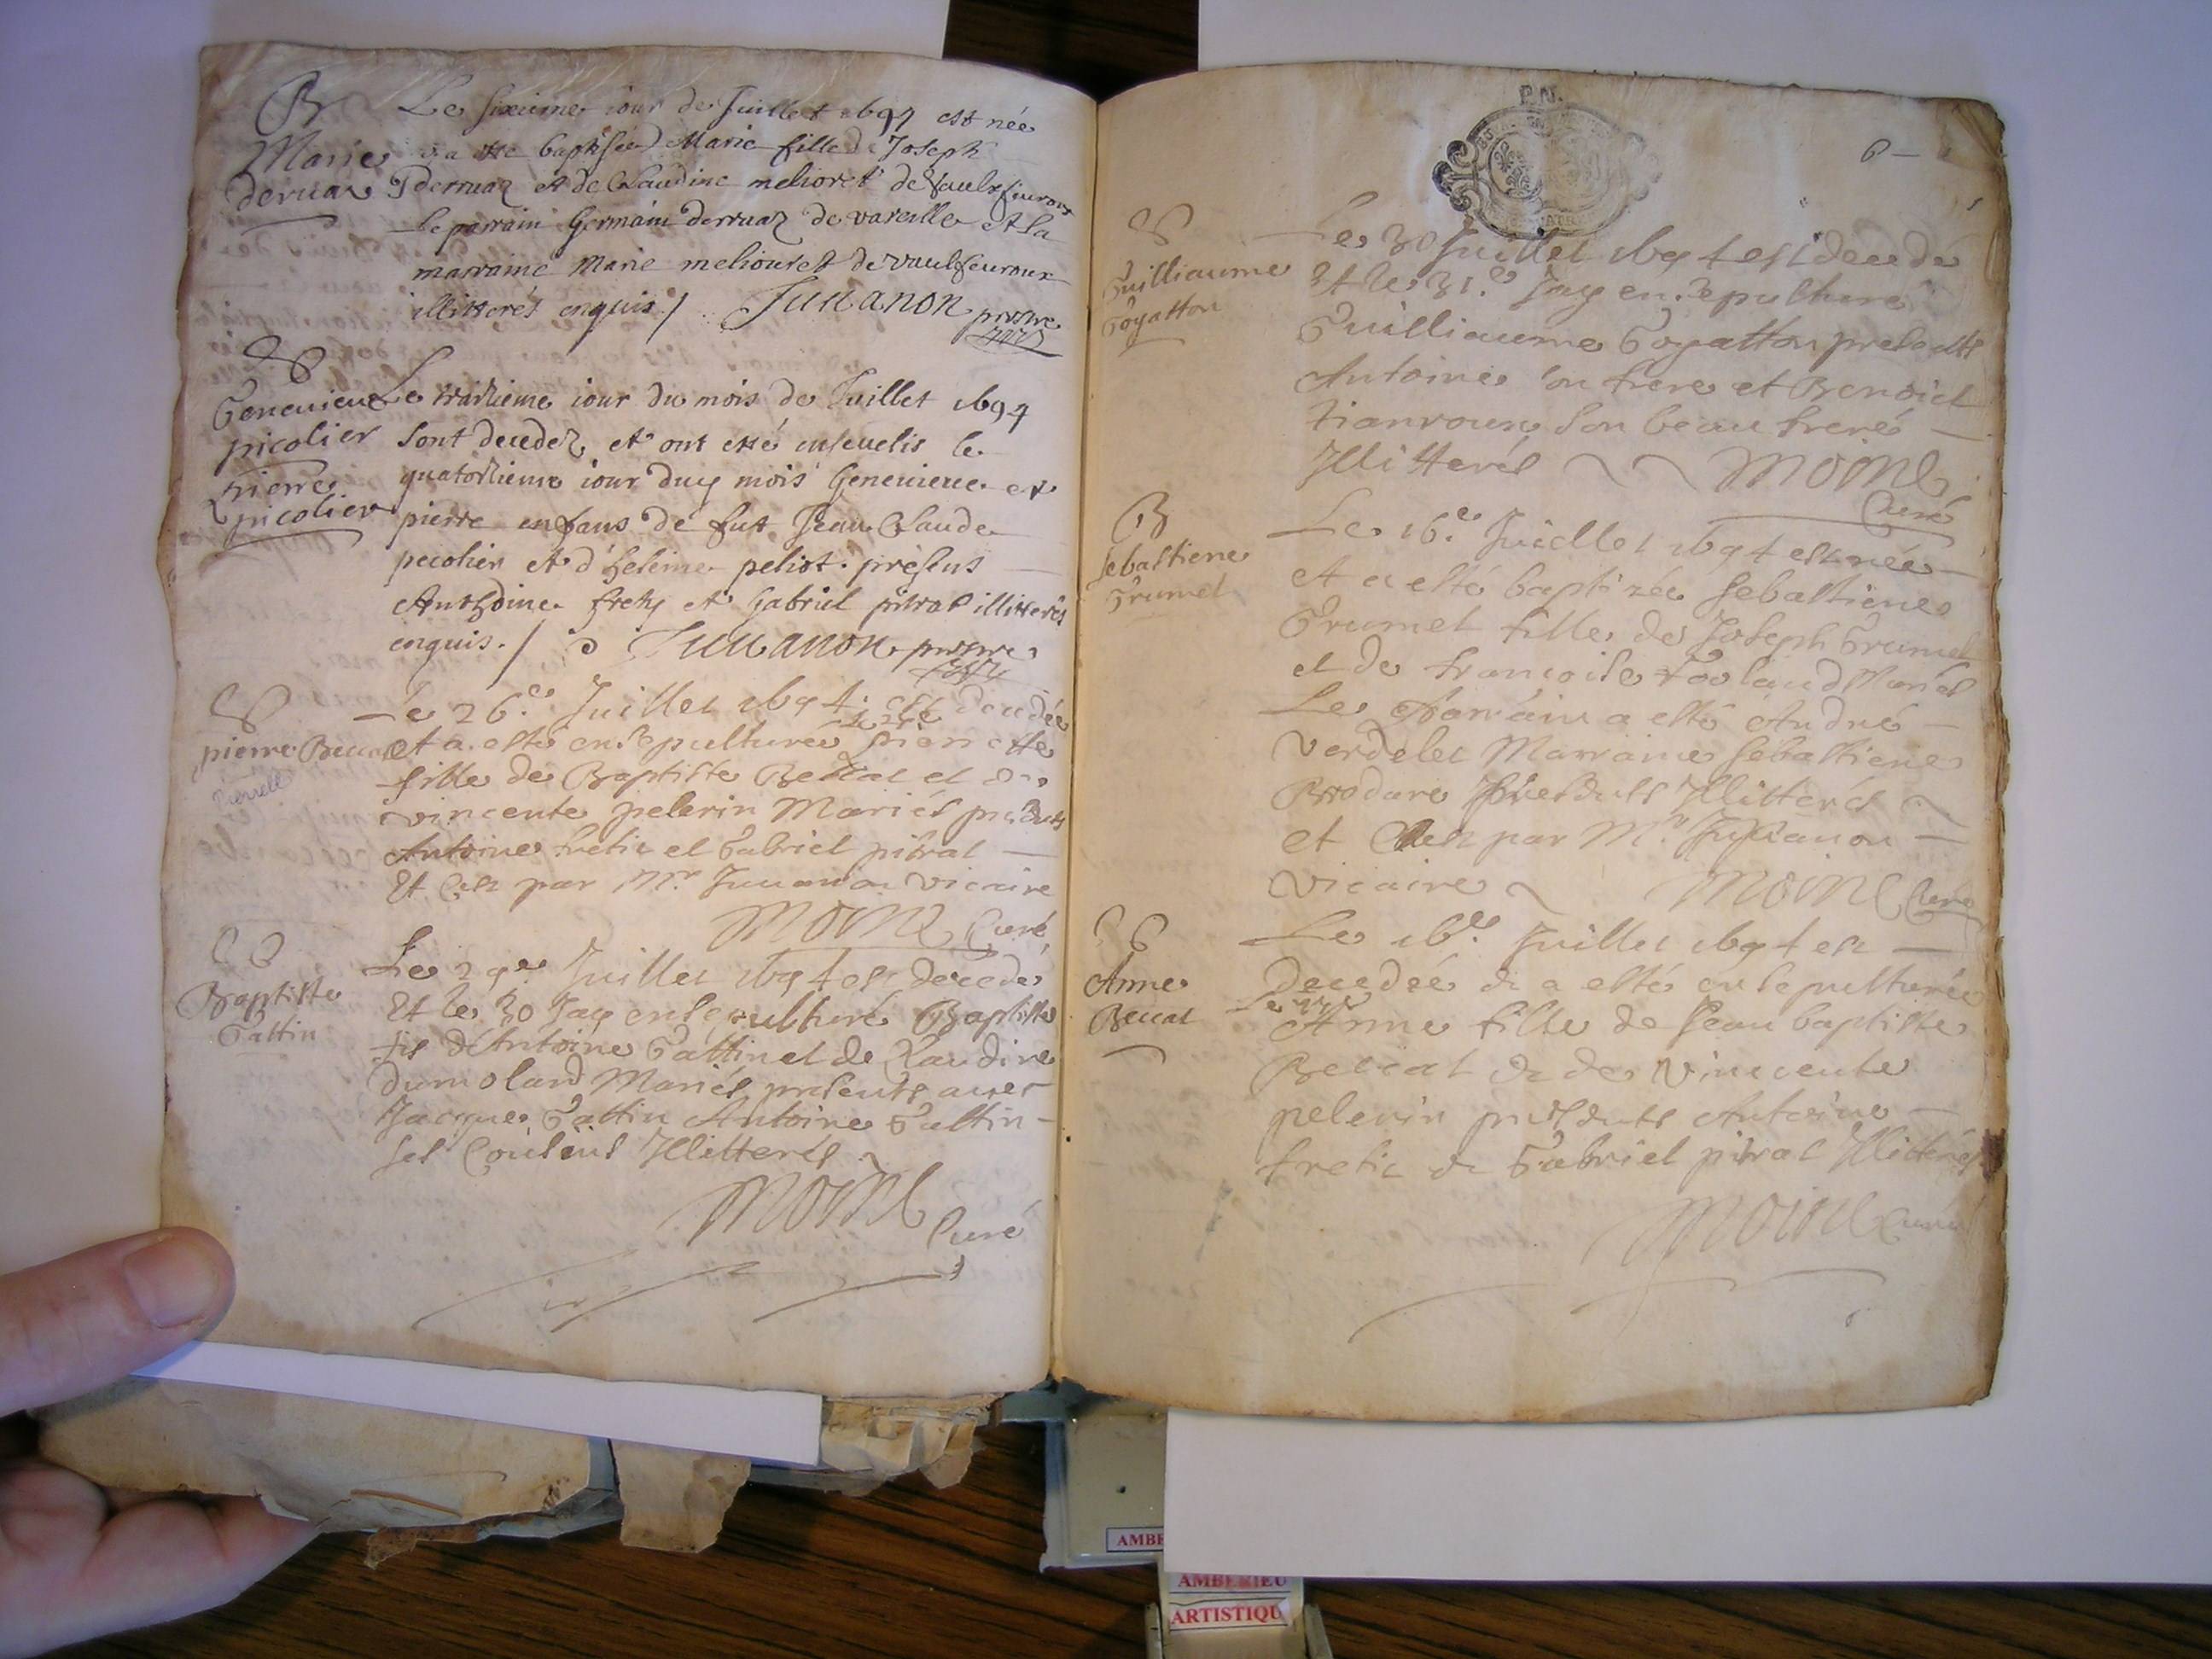 B
Marie
derruaz
Le sixieme iour de Juillet 1694 est née
et a esté baptisée Marie fille de Joseph
derruaz et de Claudine melioret de Vaulxfeuroux
Le parrain Germain derruaz de vareille et la
marraine Marie meliouret de vaulxfeuroux
illitterés enquis ./. Juuanon prestre
vicaire
Geneuieue
picolier
pierre
picolier
Le traizieme iour du mois de Juillet 1694
sont decedez et ont esté enseuelis le
quatorzieme iour duy mois Geneuieue et
pierre enfans de fut Jean Claude
pecolier et d'heleine peliot. presens
Anthoine frety et Gabriel pitrat illitterés
enquis. / Juuanon prestre
vicaire
pierre Beccat
pierrette
Le 26.e Juillet 1694. est decedée
et a esté ensepulturée pierrette
fille de Baptiste Beccat et de
vincente pelerin Mariés presents
Antoine fretic et Gabriel pitrat
Et C'est par Mr. Juuanon vicaire
Moine Curé
Baptiste
Gattin
Le 29.e Juillet 1694 est decedé
Et le 30 Jay ensepulturé Baptiste
fis d'Antoine Gattin et de Claudine
dumolard Mariés presents auec
Jacques Gattin Antoine Gattin
ses Cousins Illitterés
Moine Curé
P.N.
6
Guilliaume
Goyatton
Le 30 Juillet 1694 est decedé
Et le 31.e Jay ensepulturé
Guilliaume Goyatton presents
Antoine son frere et Benoict
tianroux son beau frere
Illitterés Moine
Curé
B
Sebastiene
Grumet
Le 16.e Juillet 1694 est née
et a esté baptizée Sebastiene
Grumet fille de Joseph Grumet
et de francoise Mariés
Le Parrain a esté André
Verdelet Marraine Sebastiene
Brodare presents Illitterés
et C'est par Mr. Juuanon
vicaire Moine Curé
Anne
Beccat
Le 16.e Juillet 1694 est
decedée & a esté ensepulturée
Le 17e
Anne fille de Jean baptiste
Beccat & de Vincente
pelerin presents Antoine
fretic & Gabriel pitrat Illitterés
Moine Curé
AMBE
AMBERIEU
ARTISTIQU